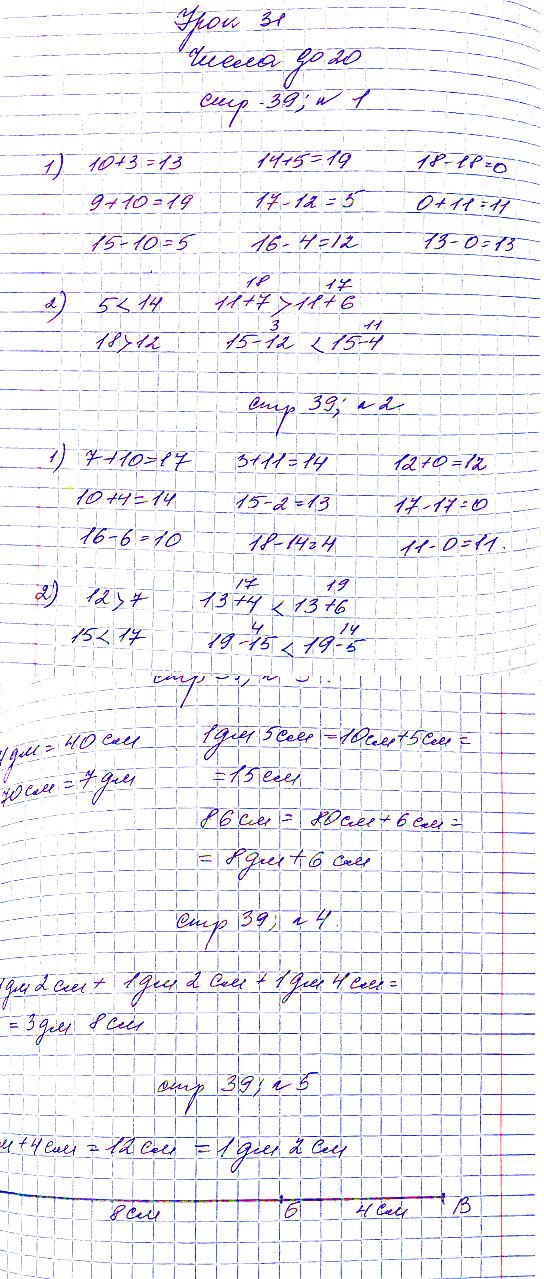 Урок 31
Числа до 20
стр 39; н 1
1) 10+3=13 14+5=19 18-18=0
9+10=19 17-12=5 0+11=11
15-10=5 16-4=12 13-0=13
18 17
2) 5<14 11+7>11+6
3 11
18>12 15-12<15-4
стр 39; н 2
1) 7+10=17 3+11=14 12+0=12
10+4=14 15-2=13 17-17=0
16-6=10 18-14=4 11-0=11.
17 19
2) 12>7 13+4<13+6
4 14
15<17 19-15<19-5
стр
4дм=40см 1дм 5см=10см+5см=
70см=7дм =15см
86см=80см+6см=
=8дм+6см
стр 39; н 4.
дм 2см+1дм 2см+1дм 4см=
=3дм 8см
стр 39; н 5
м+4см=12см=1дм 2см
8см Б 4см В